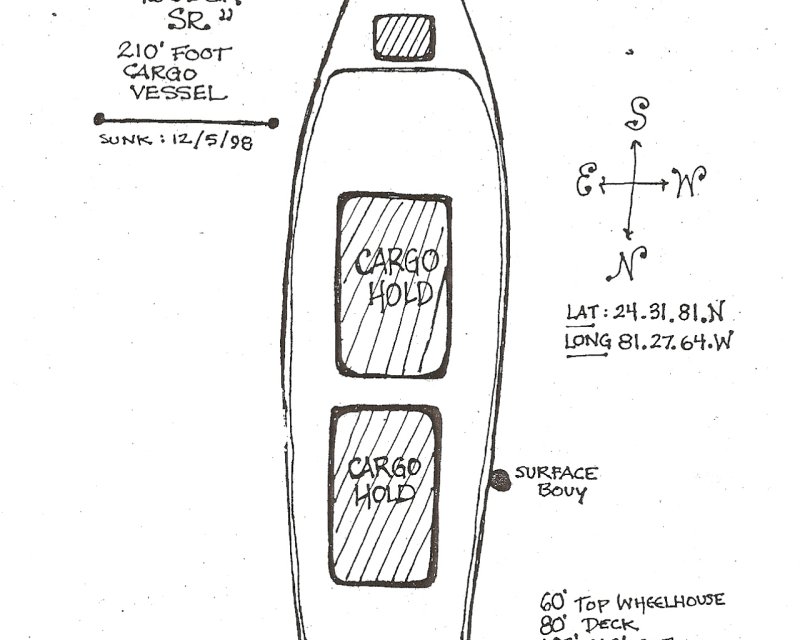 SR "
210' FOOT
CARGO
VESSEL
SUNK : 12/5/98
S
E W
N
LAT: 24.31.81.N
LONG 81.27.64.W
CARGO
HOLD
CARGO
HOLD
SURFACE
BOUY
60' TOP WHEELHOUSE
80' DECK